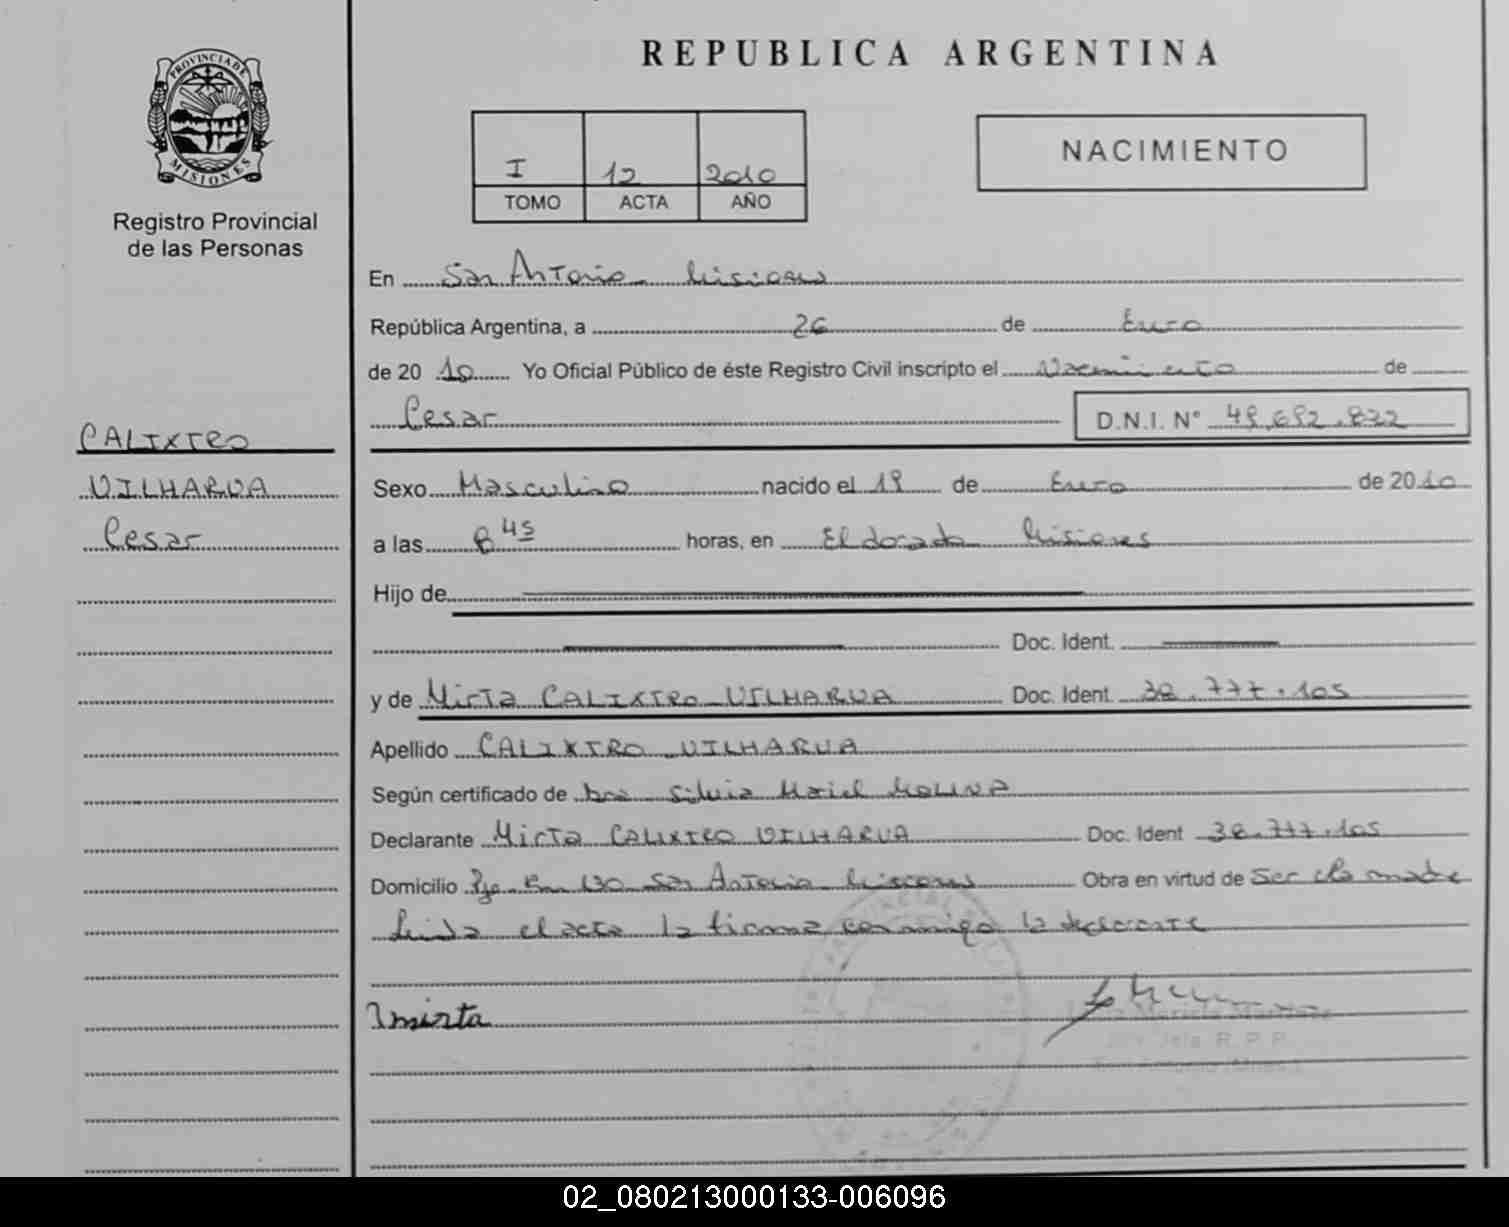 REPUBLICA ARGENTINA
PROVINCIA DE
MISIONES
Registro Provincial
de las Personas
NACIMIENTO
I 12 2010
TOMO ACTA AÑO
En San Antonio Misiones
República Argentina, a 26 de Enero
de 2010 Yo Oficial Público de éste Registro Civil inscripto el Nacimiento de
Cesar D.N.I. N°
CALIXTRO
VILHARVA
Cesar
Sexo Masculino nacido el 19 de Enero de 2010
a las 8 45 horas, en Eldorado Misiones
Hijo de
Doc. Ident.
y de Mirta CALIXTRO VILHARVA Doc. Ident. 38.777.105
Apellido CALIXTRO VILHARVA
Según certificado de Dra Silvia Mariel MOLINA
Declarante Mirta CALIXTRO VILHARVA Doc. Ident 38.777.105
Domicilio San Antonio Misiones Obra en virtud de Ser la madre
Leida el acta la firma conmigo la declarante
mirta
R. P. P.
02_080213000133-006096